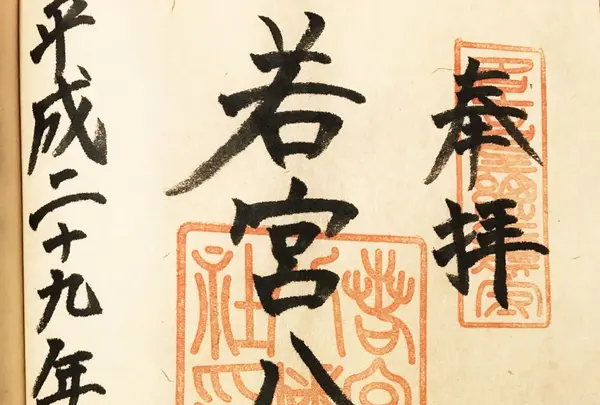 奉拝
若宮八
平成二十九年